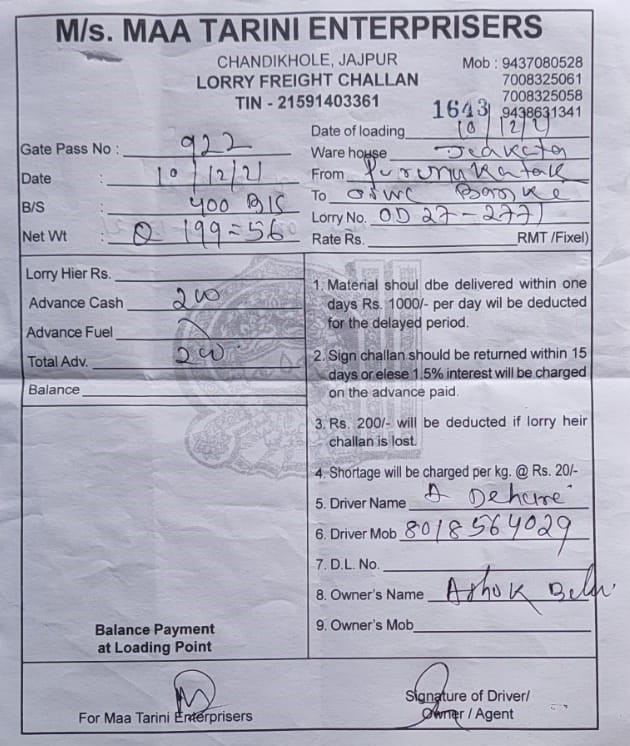 M/s. MAA TARINI ENTERPRISERS
CHANDIKHOLE, JAJPUR
LORRY FREIGHT CHALLAN
TIN - 21591403361
Mob : 9437080528
7008325061
7008325058
9438631341
1643
Date of loading 10/12/21
Gate Pass No : 922
Ware house
Date : 10/12/21
From Purunakatak
B/S : 400 B/S
To OSWC
Net Wt : Q 199=56
Lorry No. OD 27-2771
Rate Rs. RMT /Fixel)
Lorry Hier Rs.
Advance Cash 200
Advance Fuel
Total Adv. 200
Balance
1. Material shoul dbe delivered within one
days Rs. 1000/- per day wil be deducted
for the delayed period.
2. Sign challan should be returned within 15
days or elese 1.5% interest will be charged
on the advance paid.
3. Rs. 200/- will be deducted if lorry heir
challan is lost.
4. Shortage will be charged per kg. @ Rs. 20/-
5. Driver Name A Dehure
6. Driver Mob 8018564029
7. D.L. No.
8. Owner's Name Ashok
9. Owner's Mob
Balance Payment
at Loading Point
For Maa Tarini Enterprisers
Signature of Driver/
Owner / Agent